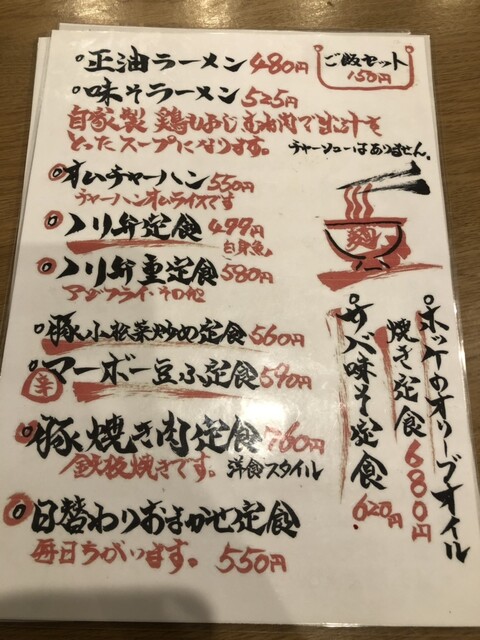 正油ラーメン 480円
ご飯セット
150円
味そラーメン 525円
自家製 鶏もも むね肉で出汁を
とったスープになります。
チャーシューはありません。
オムチャーハン 550円
チャーハンオムライスです
ノリ弁定食 499円
白身魚
ノリ弁重定食 580円
アジフライ・その他
豚小松菜炒め定食 560円
辛 マーボー豆ふ定食 590円
豚焼き肉定食 760円
鉄板焼きです。 洋食スタイル
日替わりおまかせ定食
毎日ちがいます。 550円
ホッケのオリーブオイル
焼き定食 680円
サバ味そ定食 620円